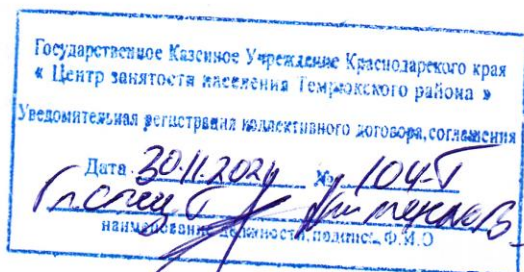 Государственное Казенное Учреждение Краснодарского края
« Центр занятости населения Темрюкского района »
Уведомительная регистрация коллективного договора, соглашения
Дата 30.11.2024 № 104-Т
наименование должности, подпись, Ф.И.О